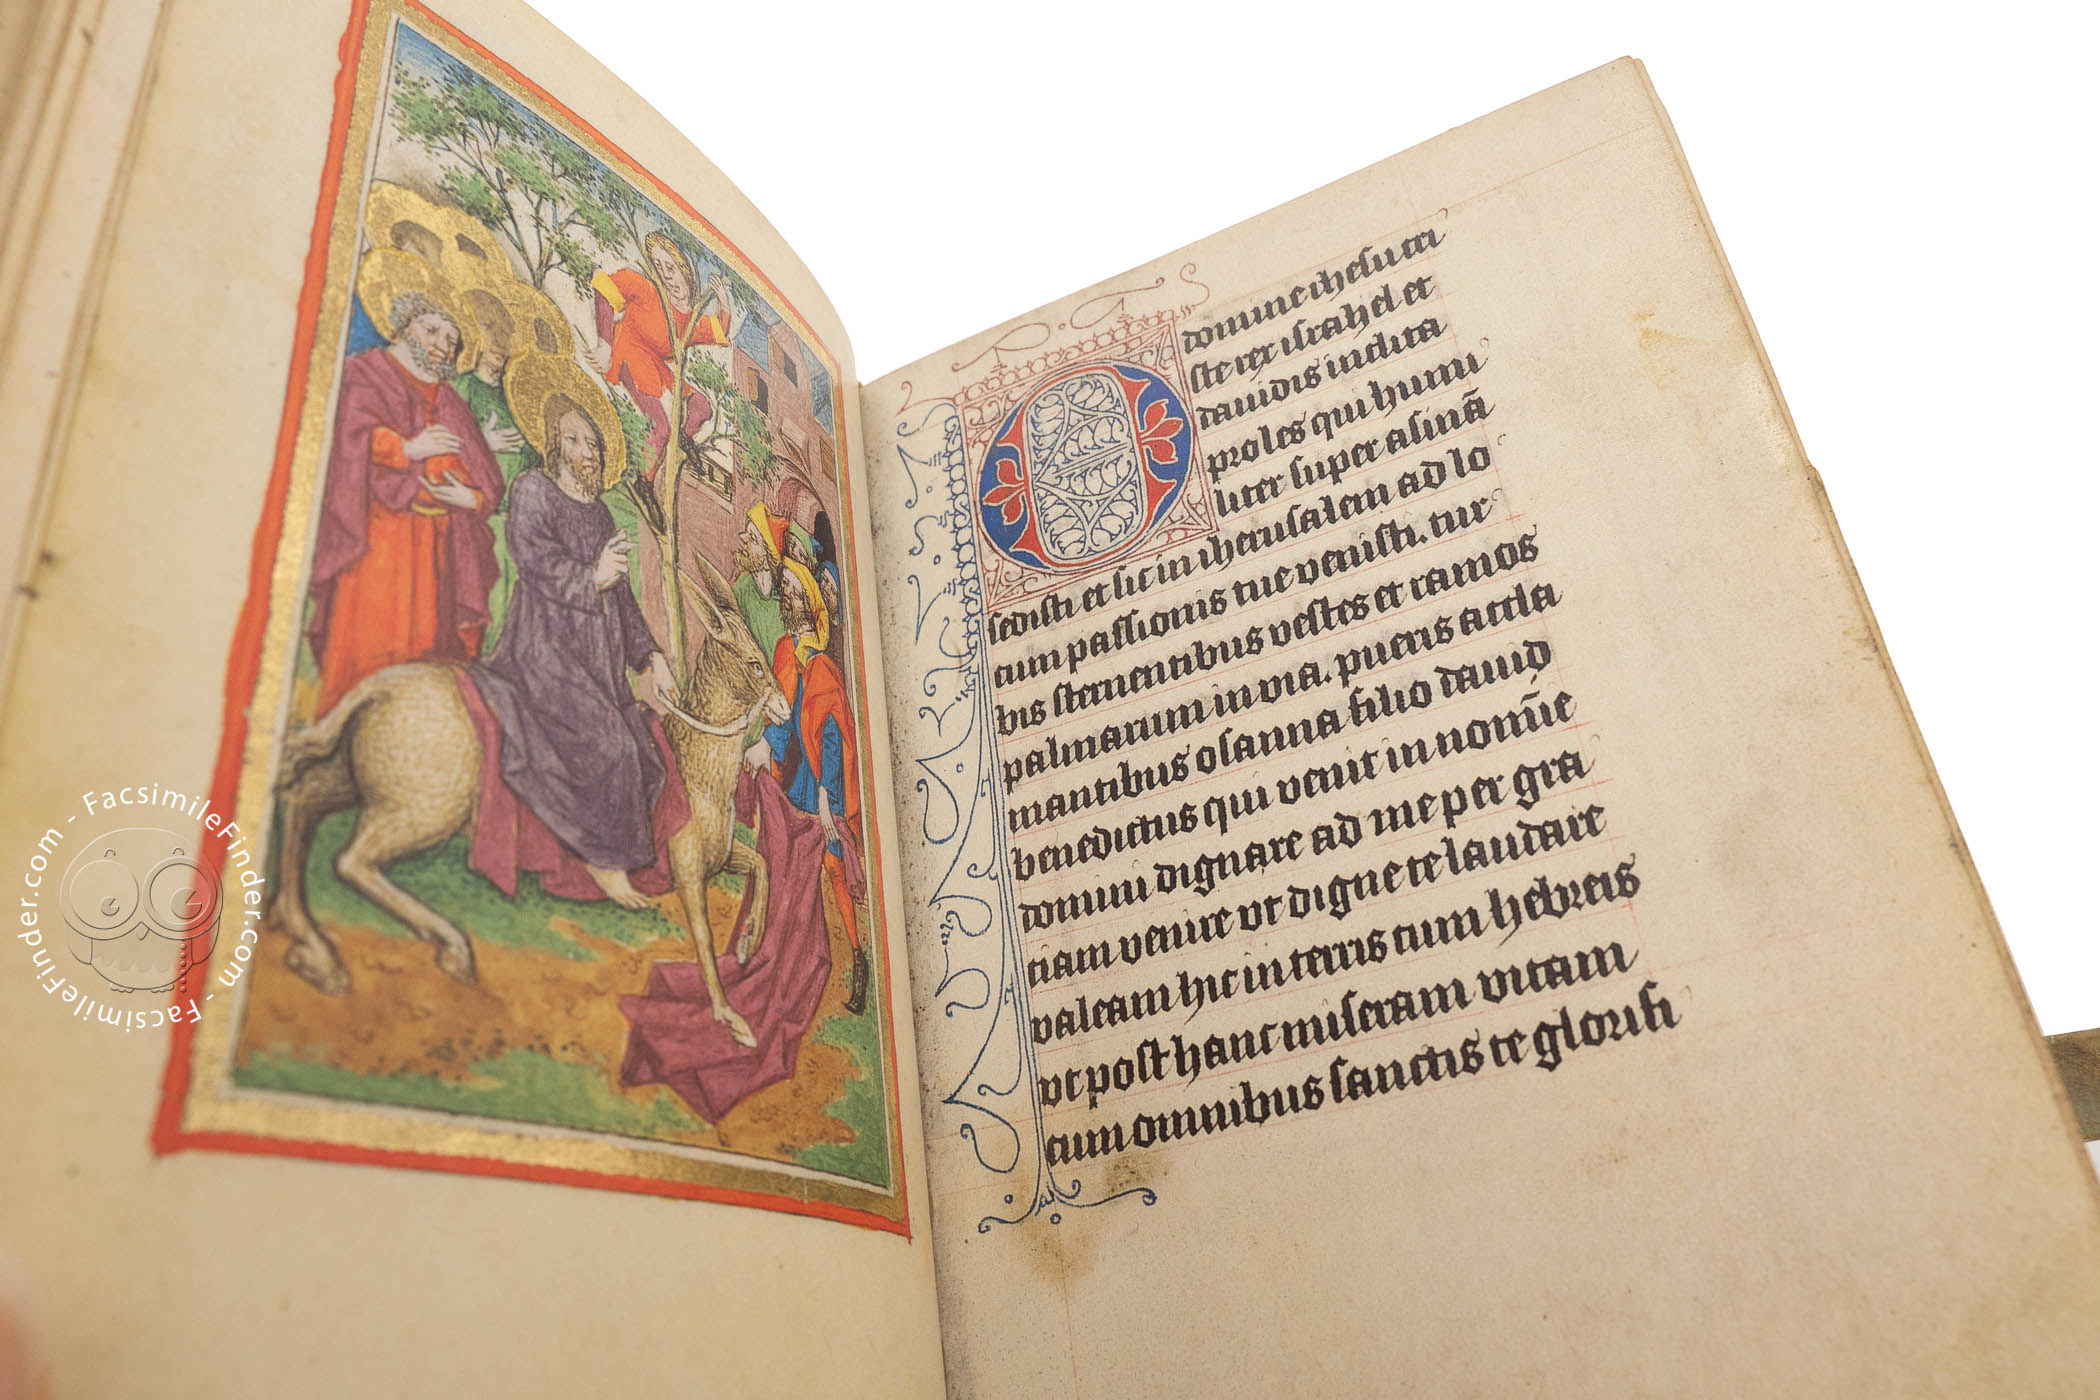 O domine ihesu cri
ste rex israhel et
dauidis inclita
proles qui humi
liter super asinā
sedisti et sic in iherusalem ad lo
cum passionis tue venisti. tur
bis sternentibus vestes et ramos
palmarum in via. pueris accla
mantibus osanna filio dauid
benedictus qui venit in nomīe
domini dignare ad me per gra
tiam venire vt digne te laudare
valeam hic in terris cum hebreis
vt post hanc miseram vitam
cum omnibus sanctis te glorifi
FacsimileFinder.com - FacsimileFinder.com -